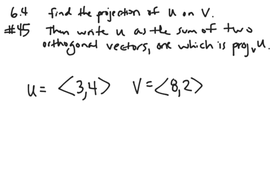 6.4 find the projection of u on v.
#45 Then write u as the sum of two
orthogonal vectors, one which is projᵥu.
u = <3,4> v = <8,2>